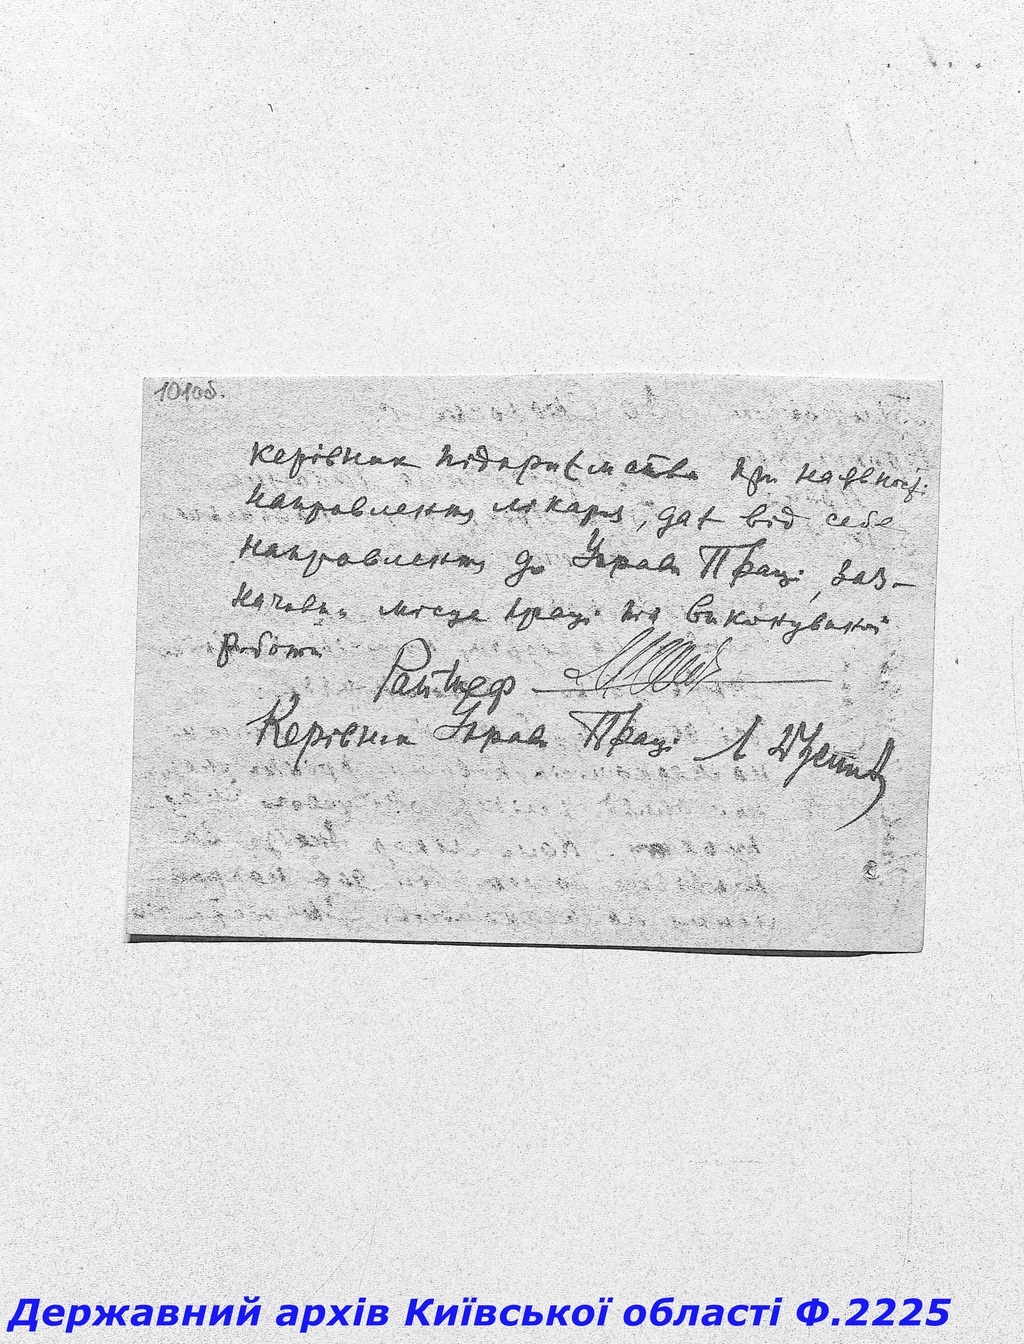 101об.
Керівник підприємства при наявності
направлення лікаря, дає від себе
направлення до Управи Праці, заз-
начивши місце праці та виконуваної
роботи
Райшеф
Керівник Управи Праці Л
Державний архів Київської області Ф.2225